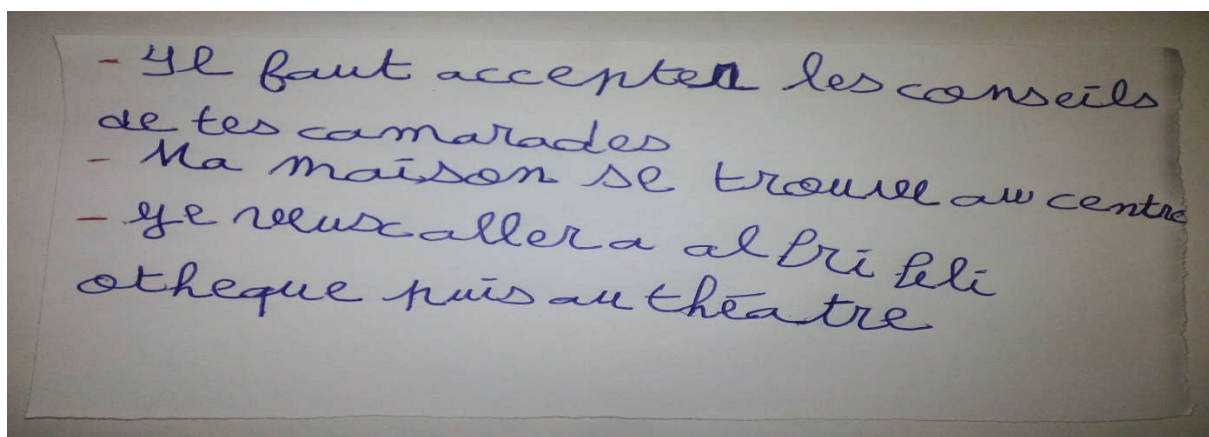 - Il faut accepter les conseils
de tes camarades
- Ma maison se trouve au centre
- Je veux aller a al bri bli
otheque puis au théatre